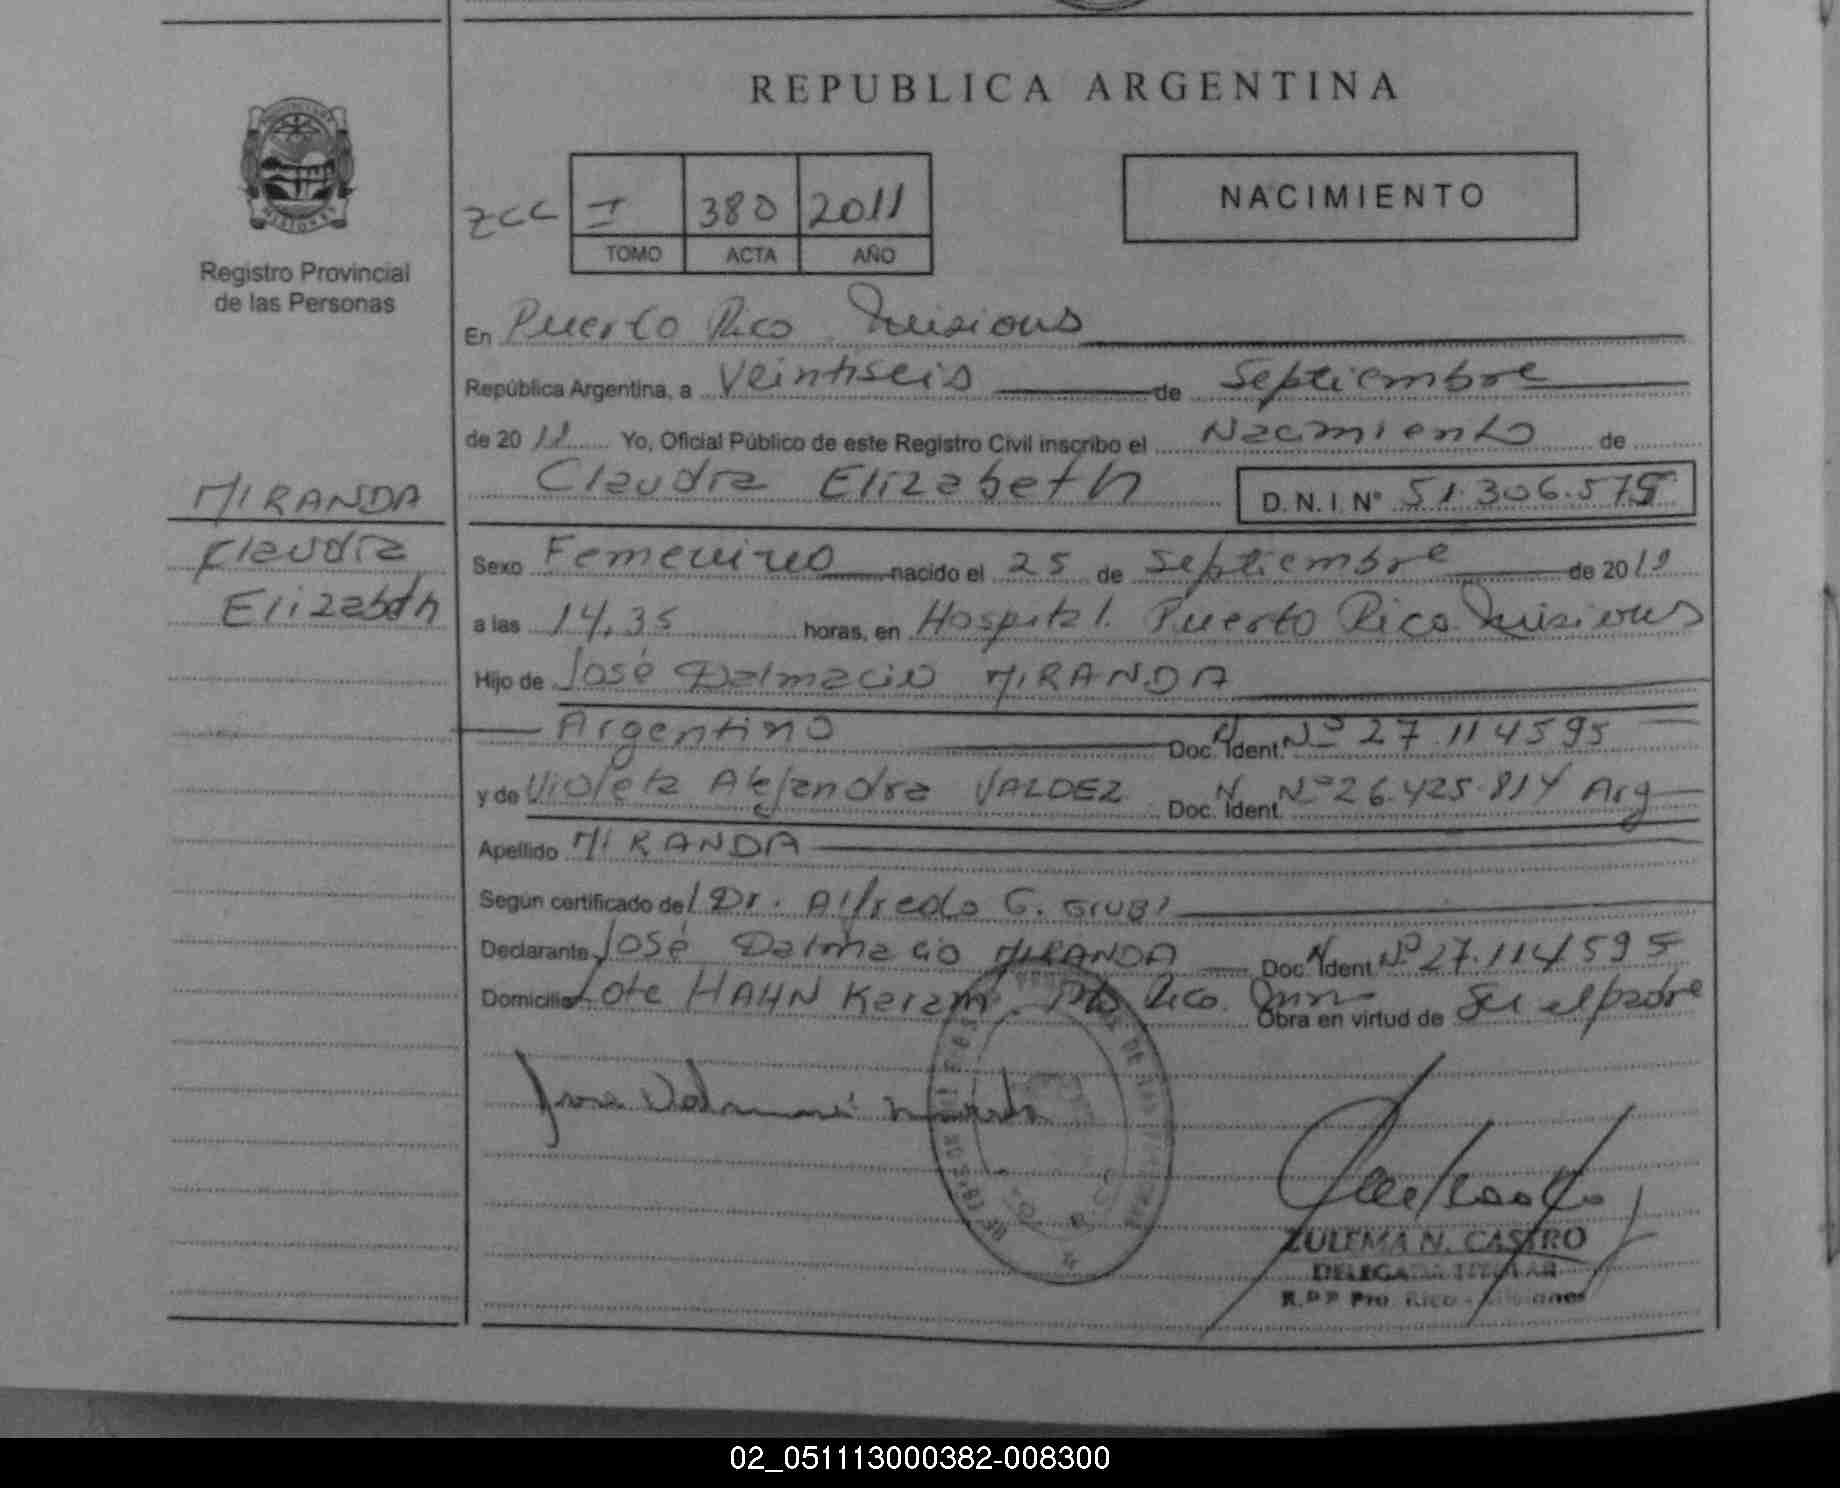 REPUBLICA ARGENTINA
NACIMIENTO
ZCC I 380 2011
TOMO ACTA AÑO
Registro Provincial
de las Personas
En Puerto Rico Misiones
República Argentina, a Veintiseis de Septiembre
de 20 11 Yo, Oficial Público de este Registro Civil inscribo el Nacimiento de
Claudia Elizabeth D.N.I. Nº 51.306.575
MIRANDA
Claudia
Elizabeth
Sexo Femenino nacido el 25 de Septiembre de 20 11
a las 14,35 horas, en Hospital. Puerto Rico Misiones
Hijo de José Dalmacio MIRANDA
Argentino Doc. Ident. Nº 27.114595
y de Violeta Alejandra VALDEZ Doc. Ident. Nº 26.425.814 Arg
Apellido MIRANDA
Según certificado del Dr. Alfredo G. GIUBI
Declarante José Dalmacio MIRANDA Doc. Ident Nº 27.114595
Domicilio Lote HAHN Karam. Pto Rico. Mnes Obra en virtud de Ser el padre
ZULEMA N. CASTRO
DELEGADA TITULAR
R.P.P Pto. Rico - Misiones
02_051113000382-008300